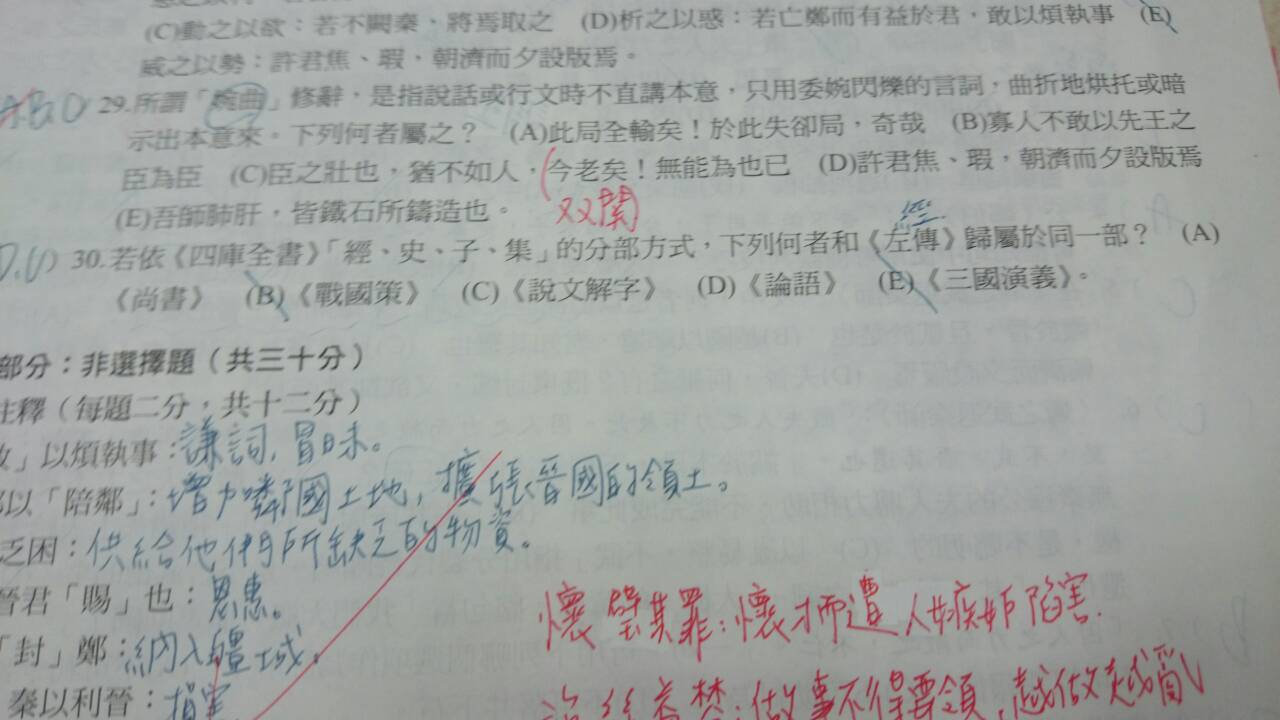 (C)動之以欲：若不闕秦，將焉取之　(D)析之以惑：若亡鄭而有益於君，敢以煩執事　(E)
威之以勢：許君焦、瑕，朝濟而夕設版焉。
29.所謂「婉曲」修辭，是指說話或行文時不直講本意，只用委婉閃爍的言詞，曲折地烘托或暗
示出本意來。下列何者屬之？　(A)此局全輸矣！於此失卻局，奇哉　(B)寡人不敢以先王之
臣為臣　(C)臣之壯也，猶不如人，今老矣！無能為也已　(D)許君焦、瑕，朝濟而夕設版焉
(E)吾師肺肝，皆鐵石所鑄造也。
双関
經
30.若依《四庫全書》「經、史、子、集」的分部方式，下列何者和《左傳》歸屬於同一部？　(A)
《尚書》　(B)《戰國策》　(C)《說文解字》　(D)《論語》　(E)《三國演義》。
部分：非選擇題（共三十分）
註釋（每題二分，共十二分）
」以煩執事：謙詞,冒昧。
以「陪鄰」：增加鄰國土地,擴張晉國的領土。
乏困：供給他們所缺乏的物資。
晉君「賜」也：恩惠。
「封」鄭：納入疆域。
秦以利晉：損害
懷璧其罪：懷才而遭人嫉妒陷害.
治絲益棼：做事不得要領,越做越亂